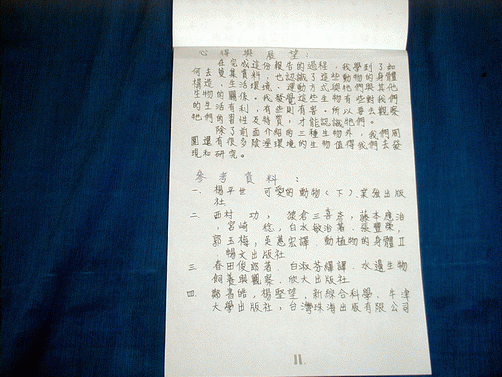 心得與展望：
在完成這份報告的過程，我學到了如
何去蒐集資料，也認識了動物的身體
構造、生活環境、運動方式與牠們和其他
生物的關係。我發覺這些生物有些對我們
的生活有利，有些則有害。所以要去觀察
牠們的習性及特質，才能認識牠們。
除了前面介紹的三種生物外，我們周
圍還有很多陰溼環境的生物值得我們去發
現和研究。
參考資料：
一、楊平世 可愛的動物(下).業強出版
社
二、西村 功，猿倉三喜彥，藤本應治
，宮崎 稔，白水敏治著.張豐榮，
郭玉梅，吳惠宏譯.動植物的身體II
暢文出版社
三、春田俊郎著.白淑芬編譯.水邊生物
飼養與觀察.欣大出版社
四、鄭書皓，楊堅望，新綜合科學.牛津
大學出版社，台灣珠海出版有限公司
11.